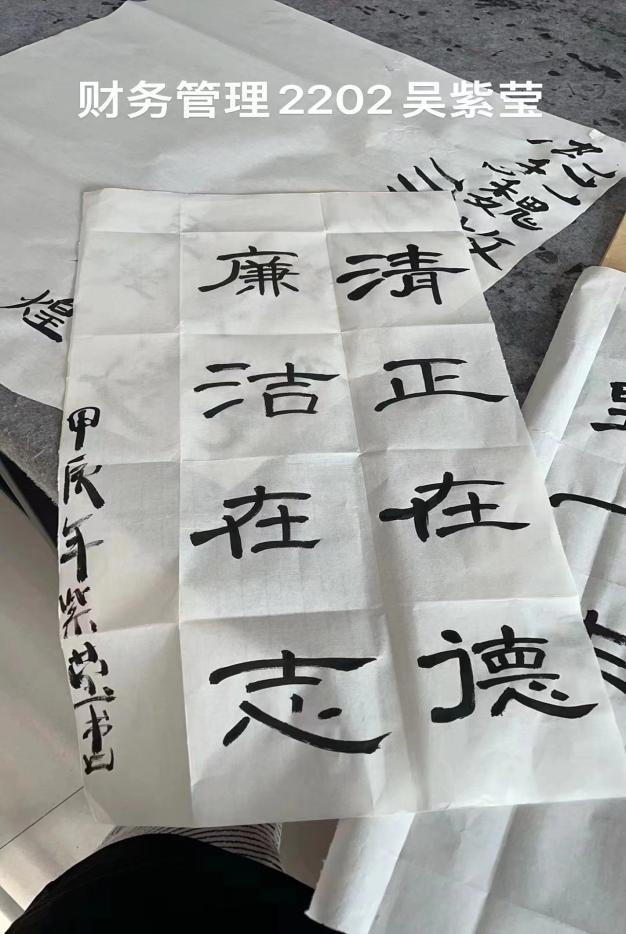 财务管理2202吴紫莹
清正在德
廉洁在志
甲辰年紫莹书
煌